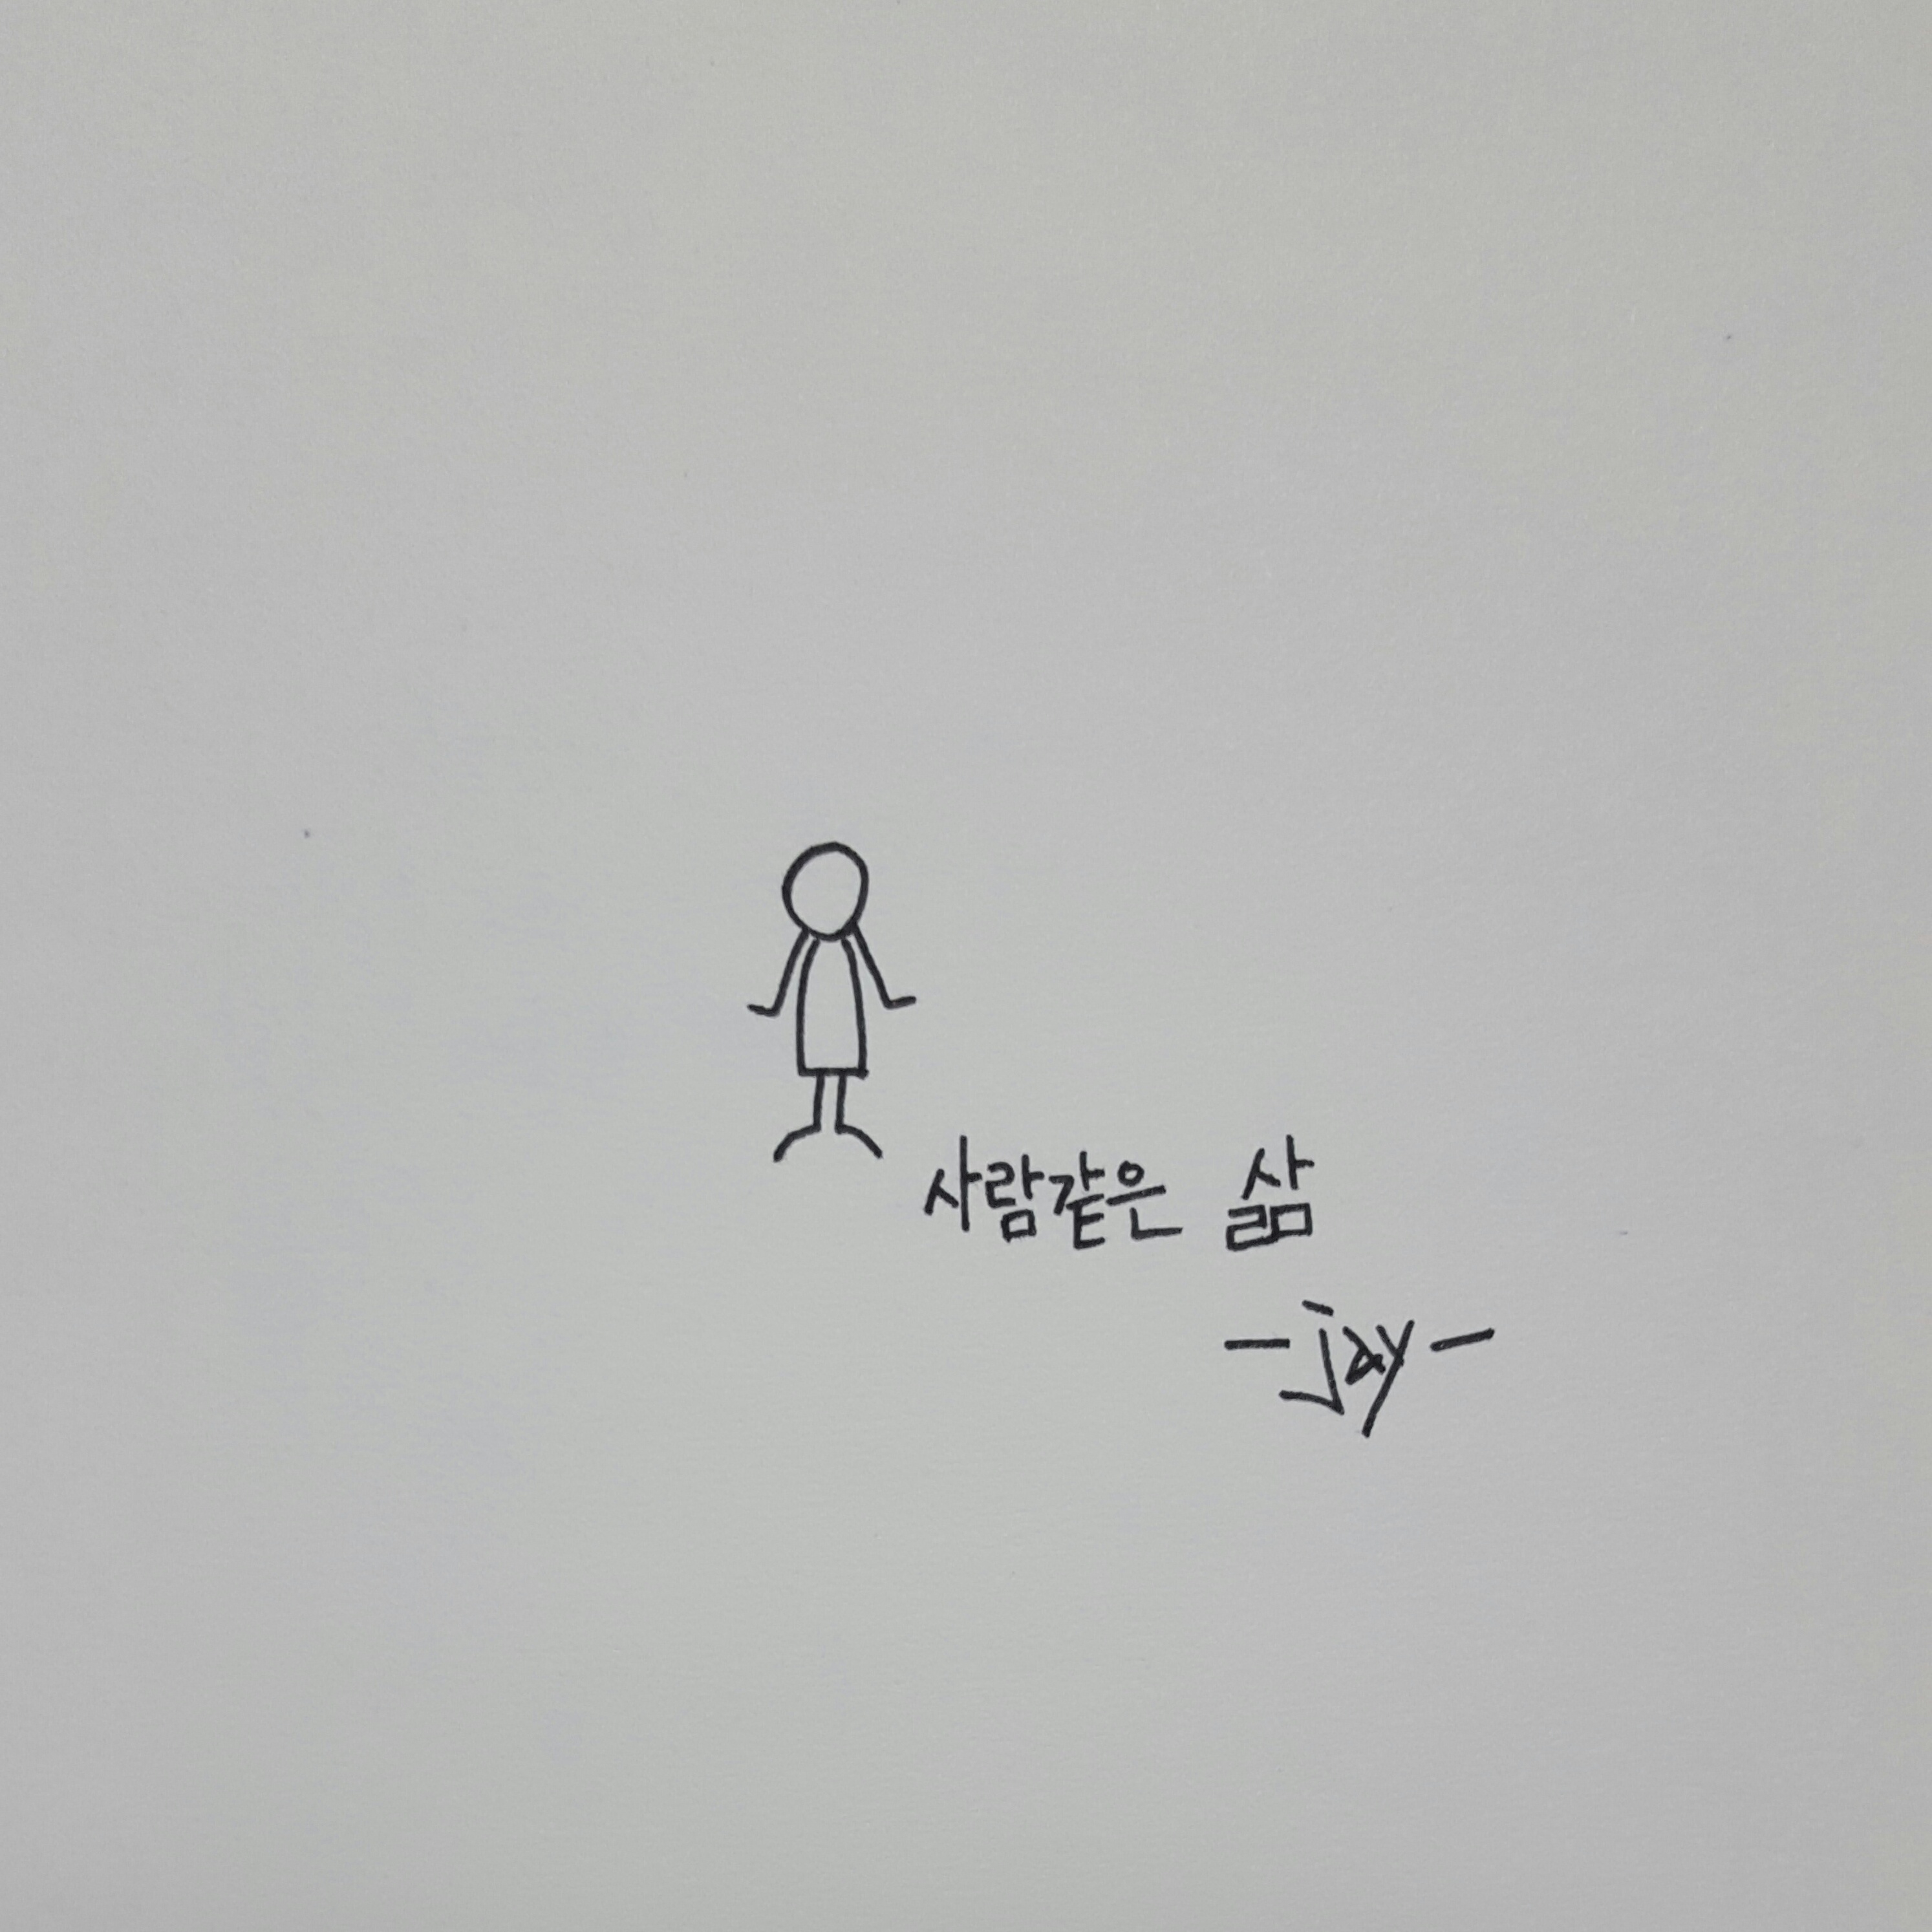 사람같은 삶
-jay-